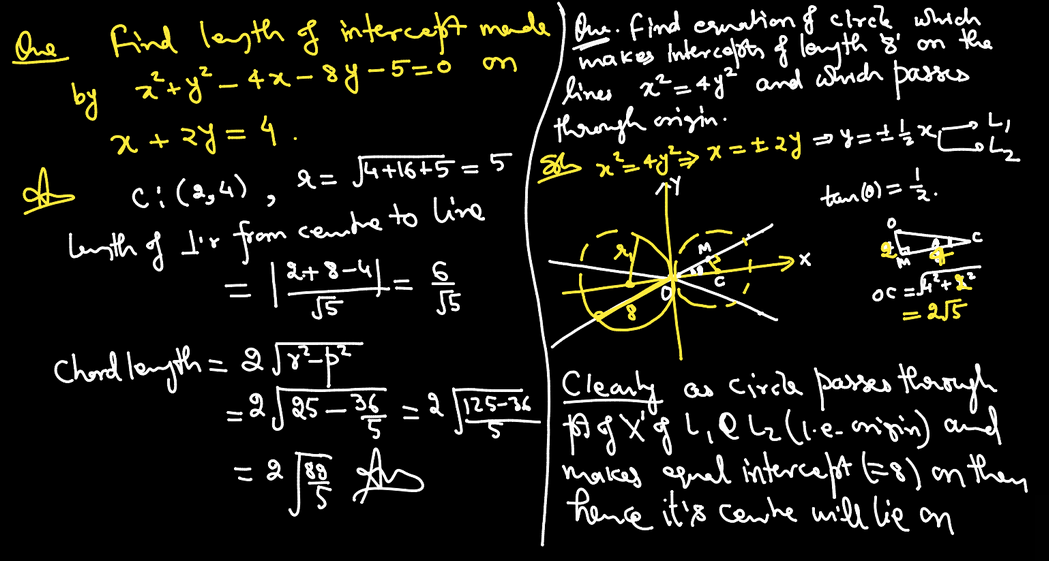 Que Find length of intercept made
by x²+y²-4x-8y-5=0 on
x+2y=4.
C:(2,4), r=√4+16+5=5
Length of ⊥'r from centre to line
=|2+8-4/√5|=6/√5
Chord length=2√r²-p²
=2√25-36/5=2√125-36/5
=2√89/5 Ans
Que. Find equation of circle which
makes intercepts of length '8' on the
lines x²=4y² and which passes
through origin.
Soln x²=4y²⇒x=±2y⇒y=±1/2x L1
L2
tan(θ)=1/2.
Y
X
r
M
C
O
8
O
C
2
M
4
OC=√4²+2²
=2√5
Clearly as circle passes through
pt of X' of L1 & L2 (i.e. origin) and
makes equal intercept (=8) on them
hence it's centre will lie on